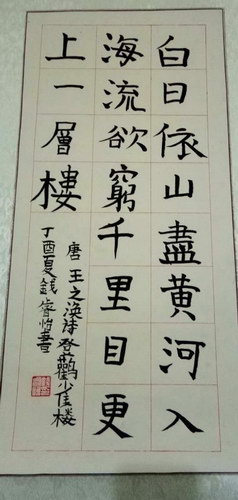 白日依山盡黄河入
海流欲窮千里目更
上一層樓
唐 王之渙詩登鸛雀樓
丁酉夏錢睿怡書